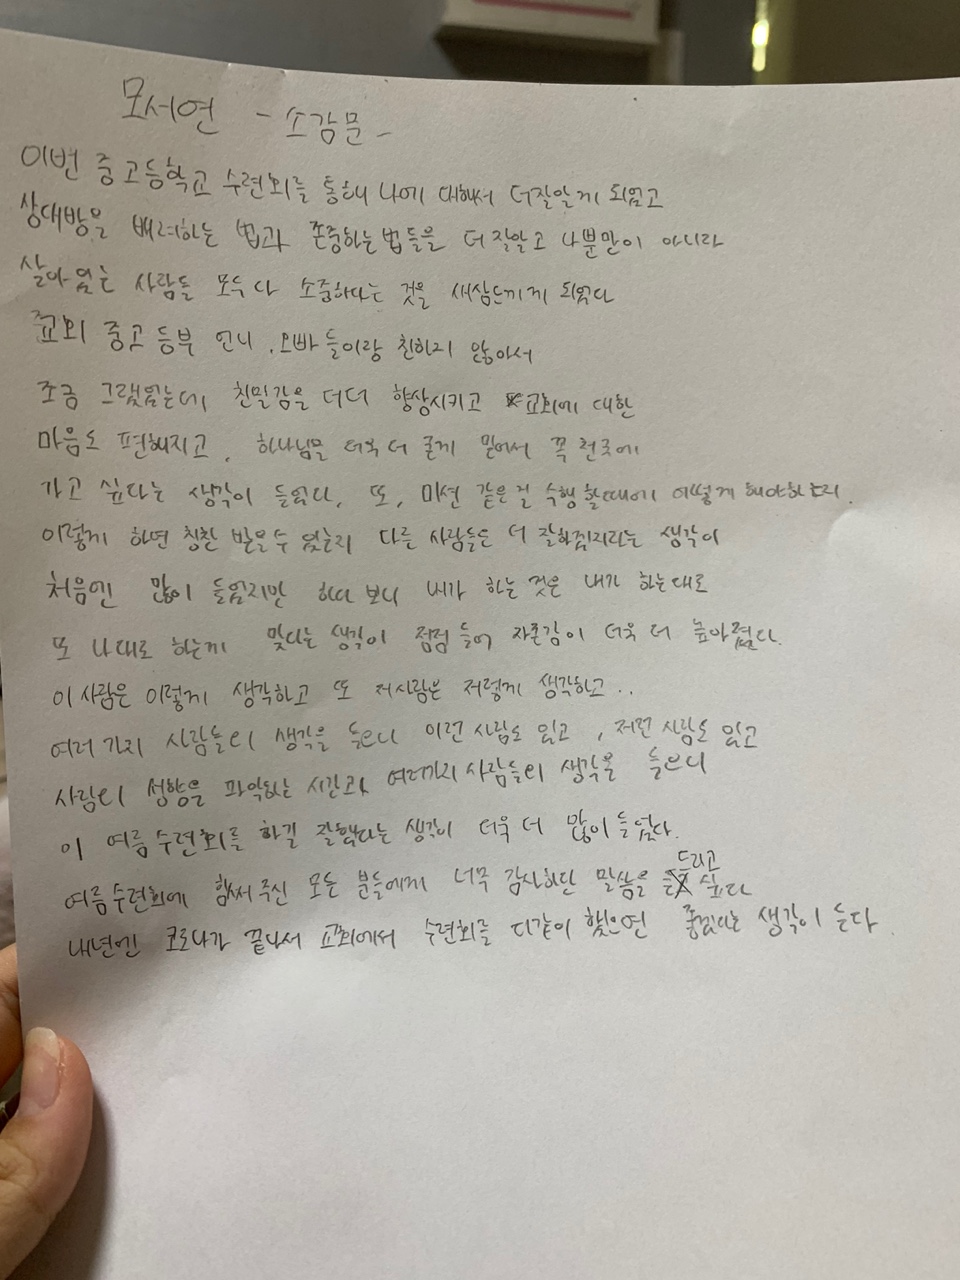 모서연 - 소감문 -
이번 중고등학교 수련회를 통해 나에 대해서 더잘알게 되었고
상대방을 배려하는 법과 존중하는법들을 더 잘알고 나뿐만이 아니라
살아있는 사람들 모두 다 소중하다는 것을 새삼느끼게 되었다
교회 중고등부 언니, 오빠들이랑 친하지 않아서
조금 그랬었는데 친밀감을 더더 향상시키고 교회에 대한
마음도 편해지고, 하나님을 더욱 더 굳게 믿어서 꼭 천국에
가고 싶다는 생각이 들었다. 또, 미션 같은걸 수행할때에 어떻게 해야하는지.
이렇게 하면 칭찬 받을수 있는지 다른 사람들은 더 잘하겠지라는 생각이
처음엔 많이 들었지만 하다 보니 내가 하는 것은 내가 하는대로
또 나대로 하는게 맞다는 생각이 점점 들어 자존감이 더욱 더 높아졌다.
이 사람은 이렇게 생각하고 또 저사람은 저렇게 생각하고..
여러 가지 사람들의 생각을 들으니 이런 사람도 있고, 저런 사람도 있고
사람의 성향을 파악하는 시간과 여러가지 사람들의 생각을 들으니
이 여름 수련회를 하길 잘했다는 생각이 더욱 더 많이 들었다.
여름수련회에 힘써주신 모든 분들에게 너무 감사하단 말씀을 드리고 싶다
내년엔 코로나가 끝나서 교회에서 수련회를 다같이 했으면 좋겠다는 생각이 든다.